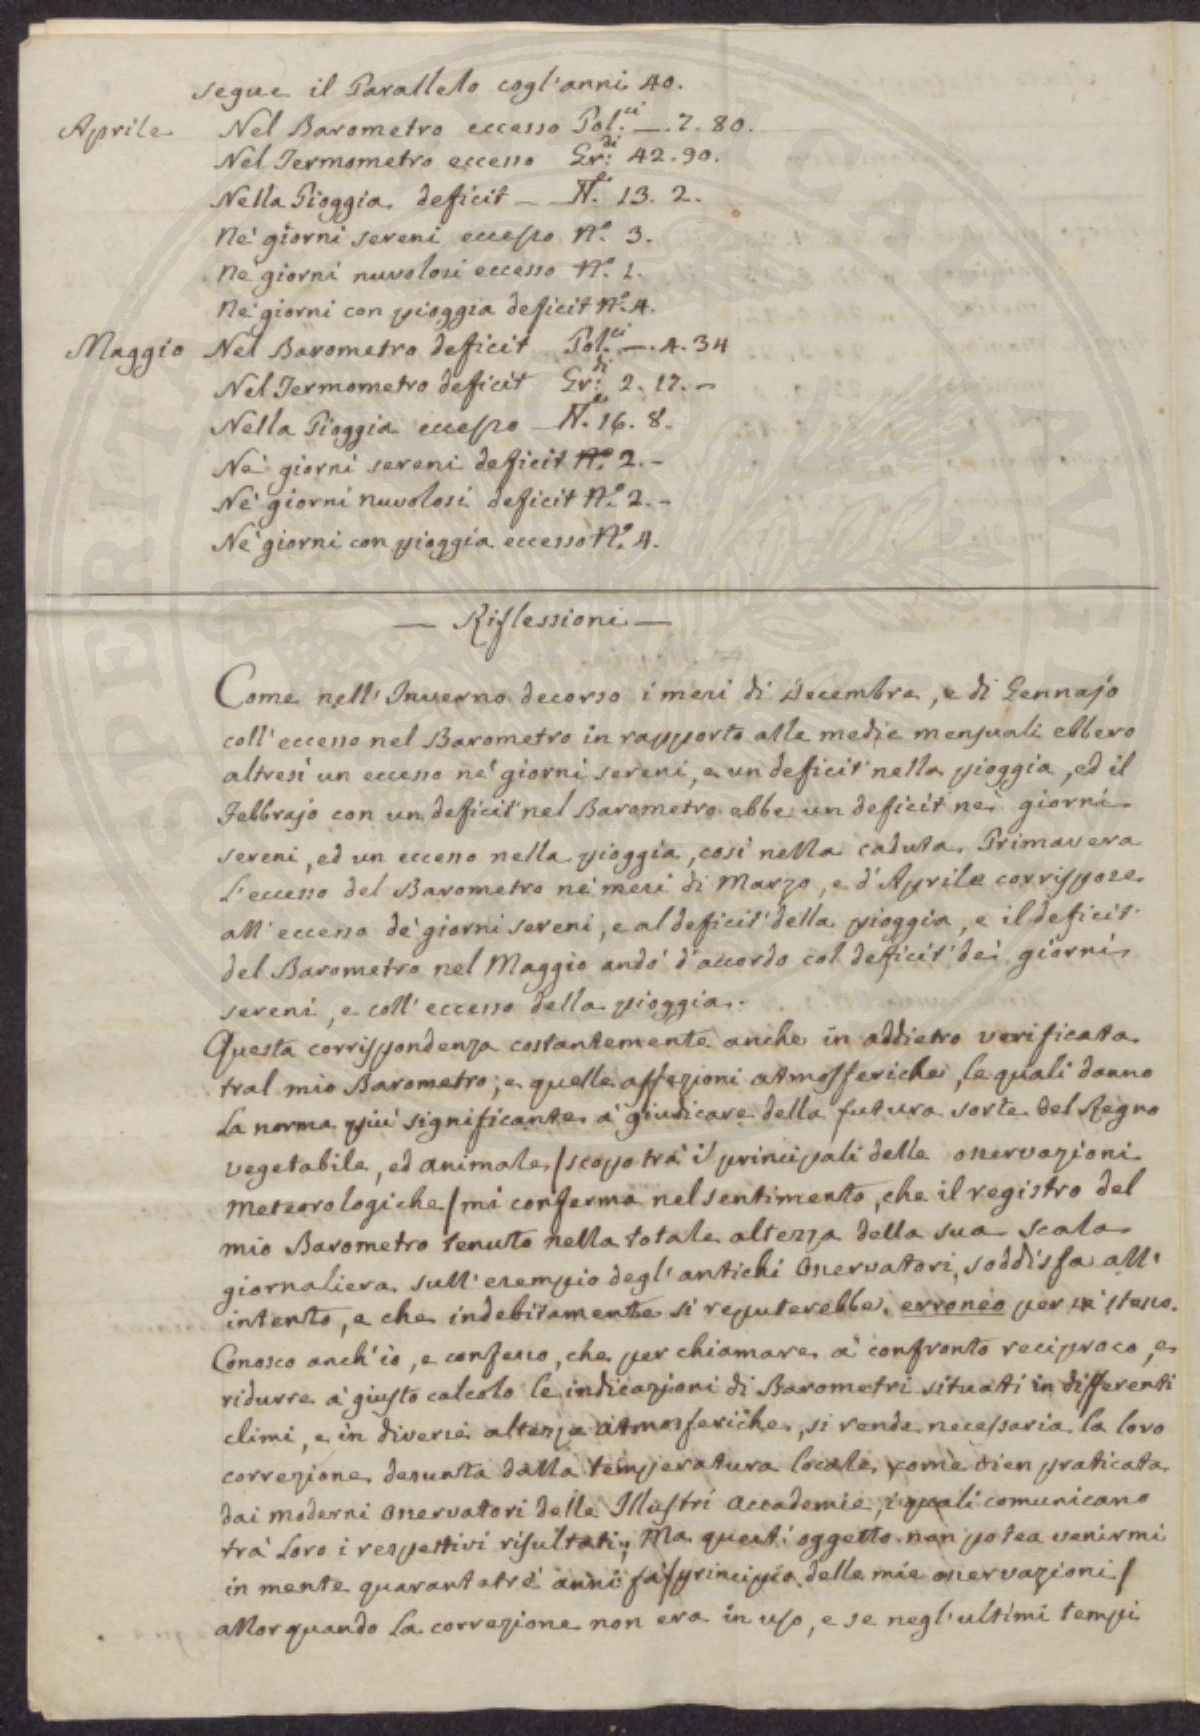 segue il Parallelo cogl'anni 40.
Aprile Nel Barometro eccesso Pol.ci —. 7. 80.
Nel Termometro eccesso Gr:di 42. 90.
Nella Pioggia deficit — N.e 13. 2.
Ne' giorni sereni eccesso N.o 3.
Ne' giorni nuvolosi eccesso N.o 1.
Ne' giorni con pioggia deficit N.o 4.
Maggio Nel Barometro deficit Pol.ci —. 4. 34
Nel Termometro deficit Gr:di 2. 17. —
Nella Pioggia eccesso — N.e 16. 8.
Ne' giorni sereni deficit N.o 2. —
Ne' giorni nuvolosi deficit N.o 2. —
Ne' giorni con pioggia eccesso N.o 4.
— Riflessioni —
Come nell' Inverno decorso i mesi di Decembre, e di Gennajo
coll' eccesso nel Barometro in rapporto alle medie mensuali ebbero
altresi un eccesso ne' giorni sereni, e un deficit nella pioggia, ed il
Febbrajo con un deficit nel Barometro ebbe un deficit nei giorni
sereni, ed un eccesso nella pioggia, cosi nella caduta Primavera
L'eccesso del Barometro ne' mesi di Marzo, e d'Aprile corrispose
all' eccesso de' giorni sereni, e al deficit della pioggia, e il deficit
del Barometro nel Maggio andò d'accordo col deficit dei giorni
sereni, e coll' eccesso della pioggia.
Questa corrispondenza costantemente anche in addietro verificata
tral mio Barometro, e quelle affezioni atmosferiche, le quali danno
La norma più significante à giudicare della futura sorte del Regno
vegetabile, ed animale /scopo trà i principali delle osservazioni
Meteorologiche/ mi conferma nel sentimento, che il registro del
mio Barometro tenuto nella totale altezza della sua scala
giornaliera sull' esempio degl' antichi Osservatori, soddisfa all'
intento, e che indebitamente si reputerebbe erroneo per se stesso.
Conosco anch'io, e confesso, che per chiamare à confronto reciproco, e
ridurre à giusto calcolo le indicazioni di Barometri situati in differenti
climi, e in diverse altezze atmosferiche, si rende necessaria la loro
correzione desunta dalla temperatura locale, come vien praticata
dai moderni Osservatori delle Illustri Accademie, i quali comunicano
trà Loro i respettivi risultati; Ma quest' oggetto non potea venirmi
in mente quarantatrè anni fa /principio delle mie osservazioni/
allor quando La correzione non era in uso, e se negl' ultimi tempi